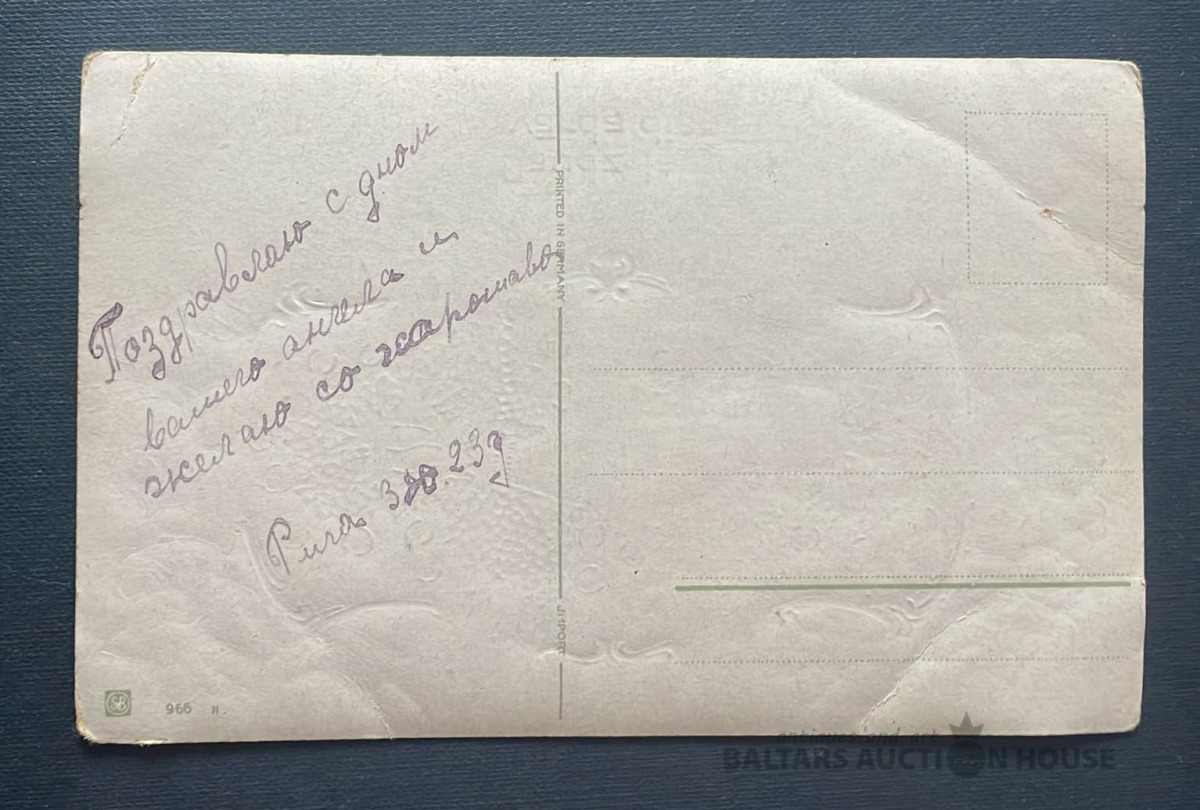 Поздравлаю с дном
вашего ангела и
желаю со
Рига 23г
PRINTED IN GERMANY
IMPORT
SB
966 N.
antiques and art
BALTARS AUCTION HOUSE